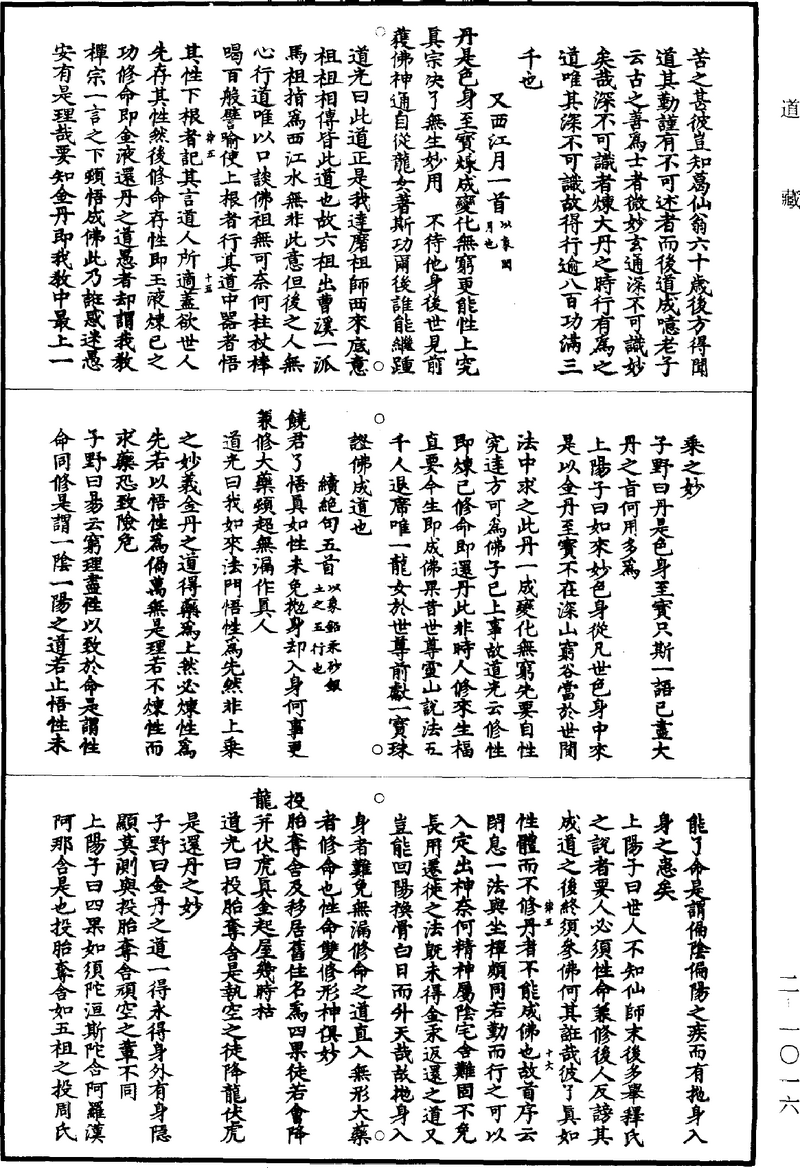 道藏
苦之甚彼豈知萬仙翁六十歲後方得聞
道其勤謹有不可述者而後道成噫老子
云古之善為士者微妙玄通深不可識妙
矣哉深不可識者煉大丹之時行有為之
道唯其深不可識故得行逾八百功滿三
千也
又西江月一首以象閏月也
丹是色身至寶煉成變化無窮更能性上究
真宗決了無生妙用 不待他身後世見前
獲佛神通自從龍女著斯功爾後誰能繼踵
道光曰此道正是我達磨祖師西來底意
祖祖相傳皆此道也故六祖出曹溪一派
馬祖指為西江水無非此意但後之人無
心行道唯以口談佛祖無可奈何柱杖棒
喝百般譬喻使上根者行其道中器者悟
其性下根者記其言道人所適蓋欲世人
先存其性然後修命存性即玉液煉己之
功修命即金液還丹之道愚者却謂我教
禪宗一言之下頓悟成佛此乃誑惑迷愚
安有是理哉要知金丹即我教中最上一
乘之妙
子野曰丹是色身至寶只斯一語已盡大
丹之旨何用多為
上陽子曰如來妙色身從凡世色身中來
是以金丹至寶不在深山窮谷當於世間
法中求之此丹一成變化無窮先要自性
究達方可為佛子已上事故道光云修性
即煉己修命即還丹此非時人修來生福
直要今生即成佛果昔世尊靈山說法五
千人退席唯一龍女於世尊前獻一寶珠
證佛成道也
續絕句五首以象鉛汞砂銀土之五行也
饒君了悟真如性未免拋身却入身何事更
兼修大藥頓超無漏作真人
道光曰我如來法門悟性為先然非上乘
之妙義金丹之道得藥為上然必煉性為
先若以悟性為偏萬無是理若不煉性而
求藥恐致險危
子野曰易云窮理盡性以致於命是謂性
命同修是謂一陰一陽之道若止悟性未
能了命是謂偏陰偏陽之疾而有拋身入
身之患矣
上陽子曰世人不知仙師末後多舉釋氏
之說者要人必須性命兼修後人反謗其
成道之後終須參佛何其誑哉彼了真如
性體而不修丹者不能成佛也故首序云
閉息一法與坐禪頗同若勤而行之可以
入定出神奈何精神屬陰宅舍難固不免
長用遷徙之法既未得金汞返還之道又
豈能回陽換骨白日而升天哉故拋身入
身者難免無漏修命之道直入無形大藥
者修命也性命雙修形神俱妙
投胎奪舍及移居舊住名為四果徒若會降
龍并伏虎真金起屋幾時枯
道光曰投胎奪舍是執空之徒降龍伏虎
是還丹之妙
子野曰金丹之道一得永得身外有身隱
顯莫測與投胎奪舍頑空之輩不同
上陽子曰四果如須陀洹斯陀含阿羅漢
阿那含是也投胎奪舍如五祖之投周氏
律五
十五
律五
十六
二-一〇一六